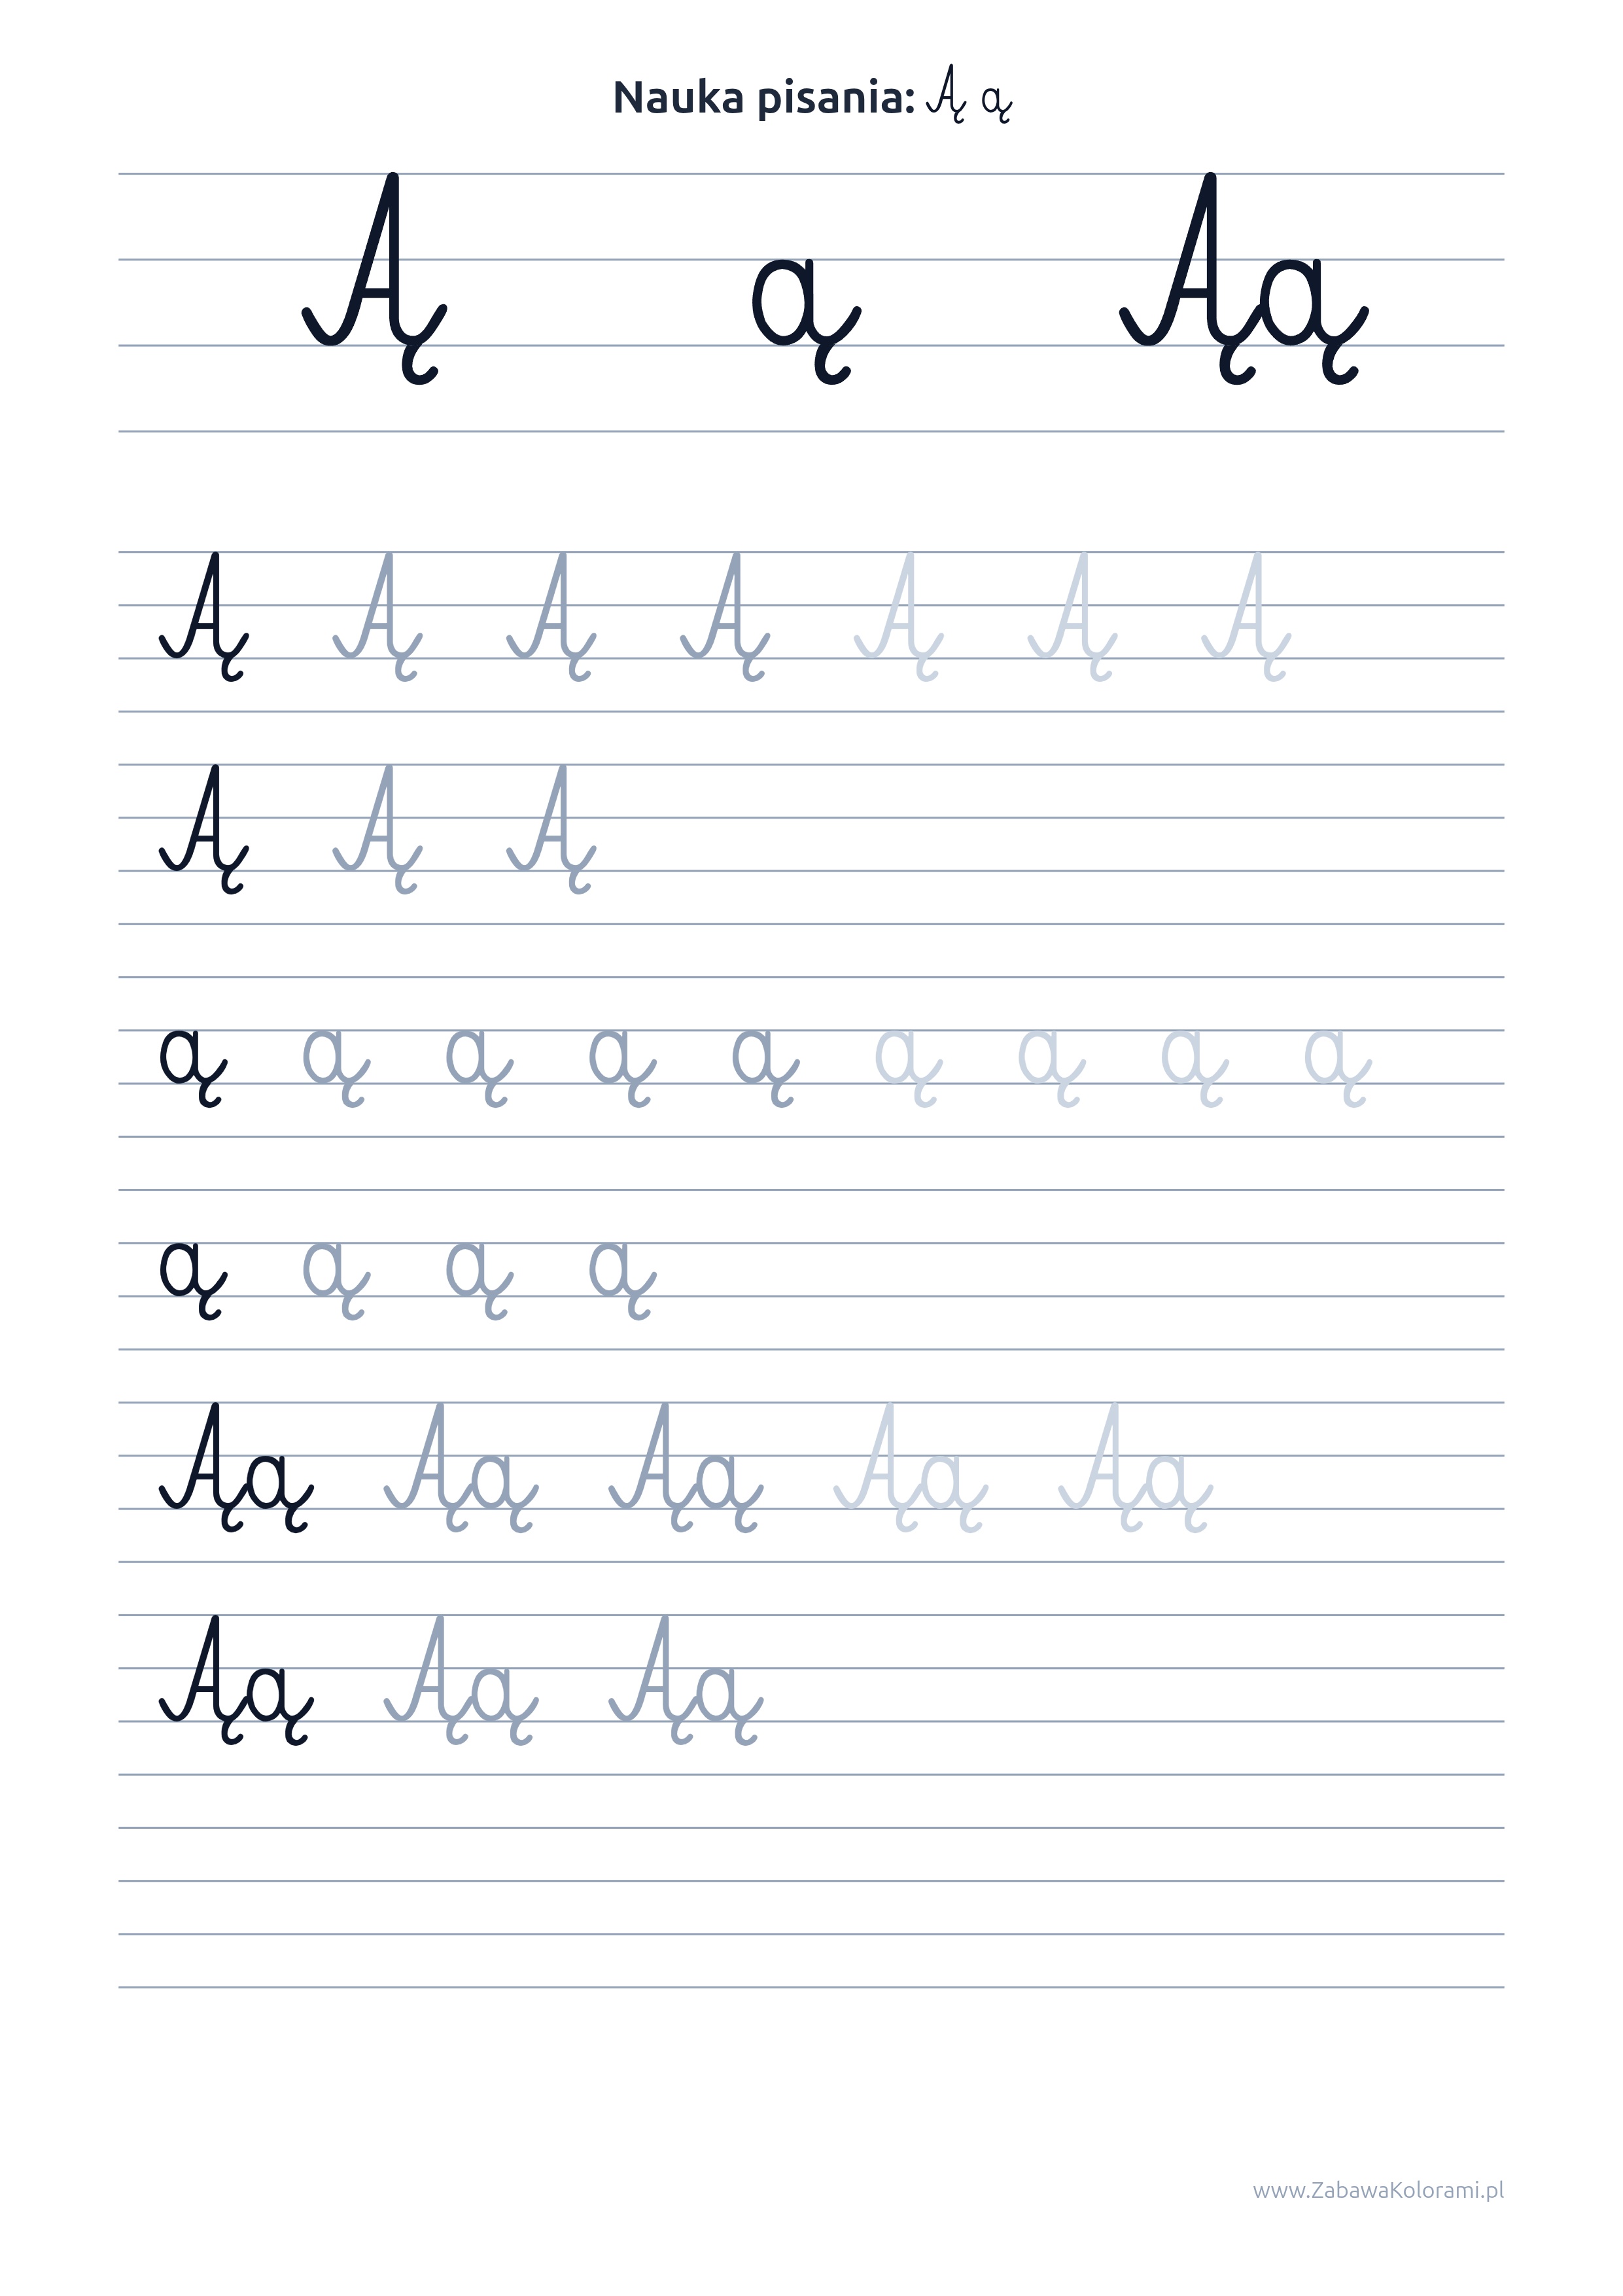 Nauka pisania: Ą ą
Ą ą Ąą
Ą Ą Ą Ą Ą Ą Ą
Ą Ą Ą
ą ą ą ą ą ą ą ą ą
ą ą ą ą
Ąą Ąą Ąą Ąą Ąą
Ąą Ąą Ąą
www.ZabawaKolorami.pl